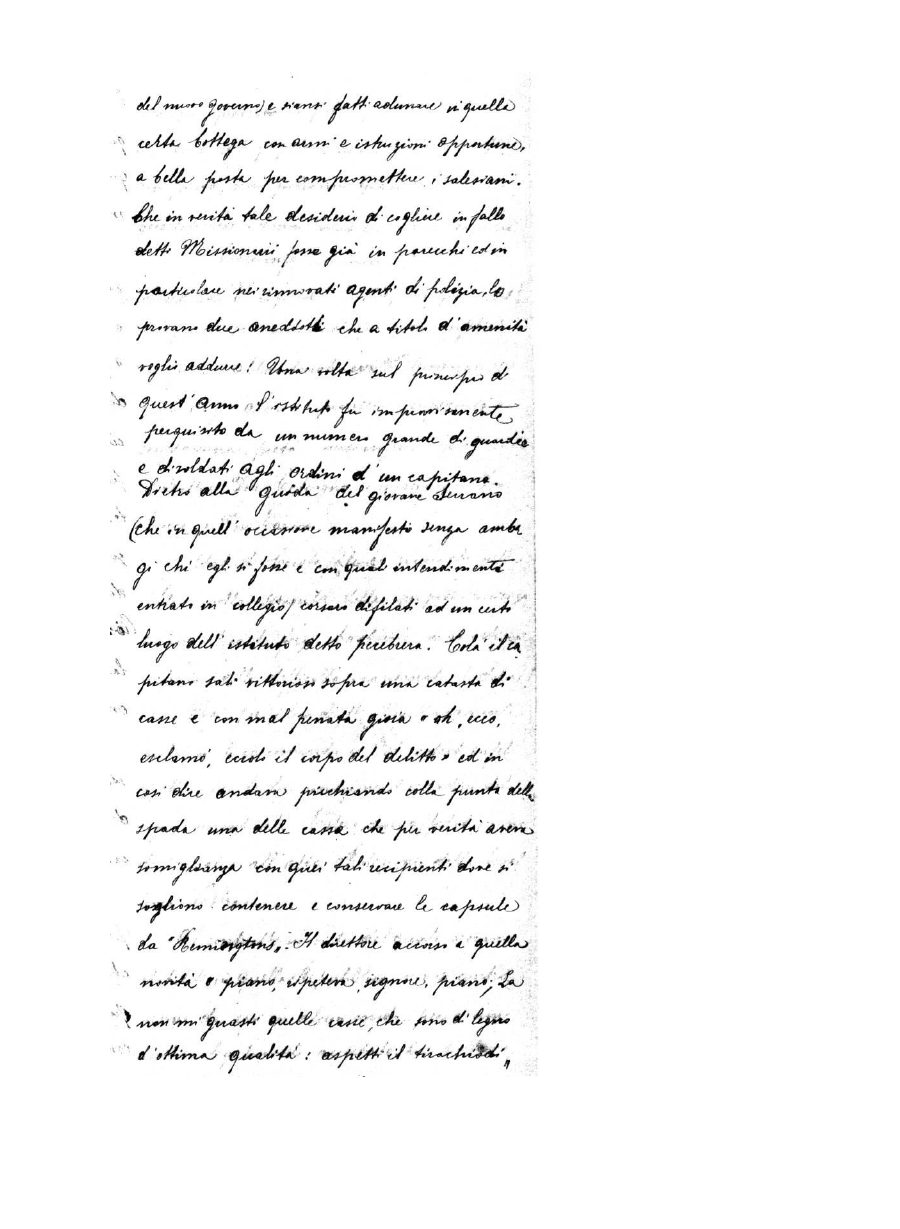 del nuovo governo) e siansi fatti adunare in quella
certa bottega con armi e istruzioni opportune,
a bella posta per compromettere i salesiani.
Che in verità tale desiderio di cogliere in fallo
detti Missionarii fosse già in parecchi ed in
particolare nei rinnovati agenti di polizia, lo
provano due aneddoti che a titolo d'amenità
voglio addurre! Una volta sul principio di
quest'anno l'istituto fu improvvisamente
perquisito da un numero grande di guardie
e di soldati agli ordini d'un capitano.
Dietro alla guida del giovane Serrano
(che in quell'occasione manifestò senza amba
gi chi egli si fosse e con quali intendimenti
entrato in collegio) corsero difilati ad un certo
luogo dell'istituto detto pesebrera. Colà il ca
pitano salì vittorioso sopra una catasta di
casse e con mal penata gioia « oh, ecco,
esclamò, eccolo il corpo del delitto » ed in
così dire andava picchiando colla punta della
spada una delle casse che per verità aveva
somiglianza con quei tali recipienti dove si
sogliono contenere e conservare le capsule
da "Remingtons„. Il direttore accorso a quella
novità « piano, ripeteva, signore, piano; La
non mi guasti quelle casse, che sono di legno
d'ottima qualità: aspetti il tirachiodi „